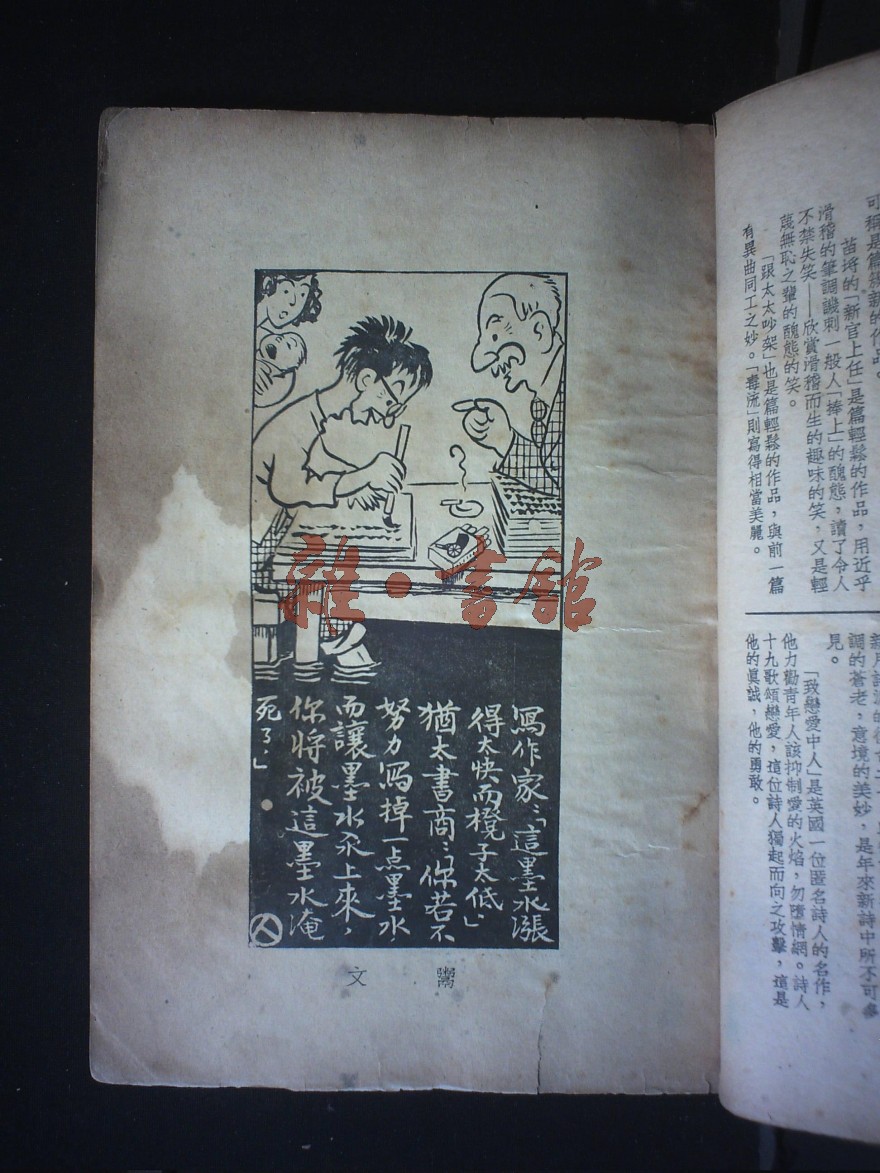 的作品。
苗埓的「新官上任」是篇輕鬆的作品，用近乎
滑稽的筆調譏刺一般人「捧上」的醜態，讀了令人
不禁失笑——欣賞滑稽而生的趣味的笑，又是輕
蔑無恥之輩的醜態的笑。
「跟太太吵架」也是篇輕鬆的作品，與前一篇
有異曲同工之妙。「毒流」則寫得相當美麗。
調的蒼老，意境的美妙，是年來新詩中所不可多
見。
「致戀愛中人」是英國一位匿名詩人的名作，
他力勸青年人該抑制愛的火焰，勿墮情網。詩人
十九歌頌戀愛，這位詩人獨起而向之攻擊，這是
他的眞誠，他的勇敢。
寫作家：「這墨水漲
得太快而櫈子太低」
猶太書商：「你若不
努力寫掉一点墨水，
而讓墨水汆上來，
你將被這墨水淹
死了.」
鬻文
雜·書館